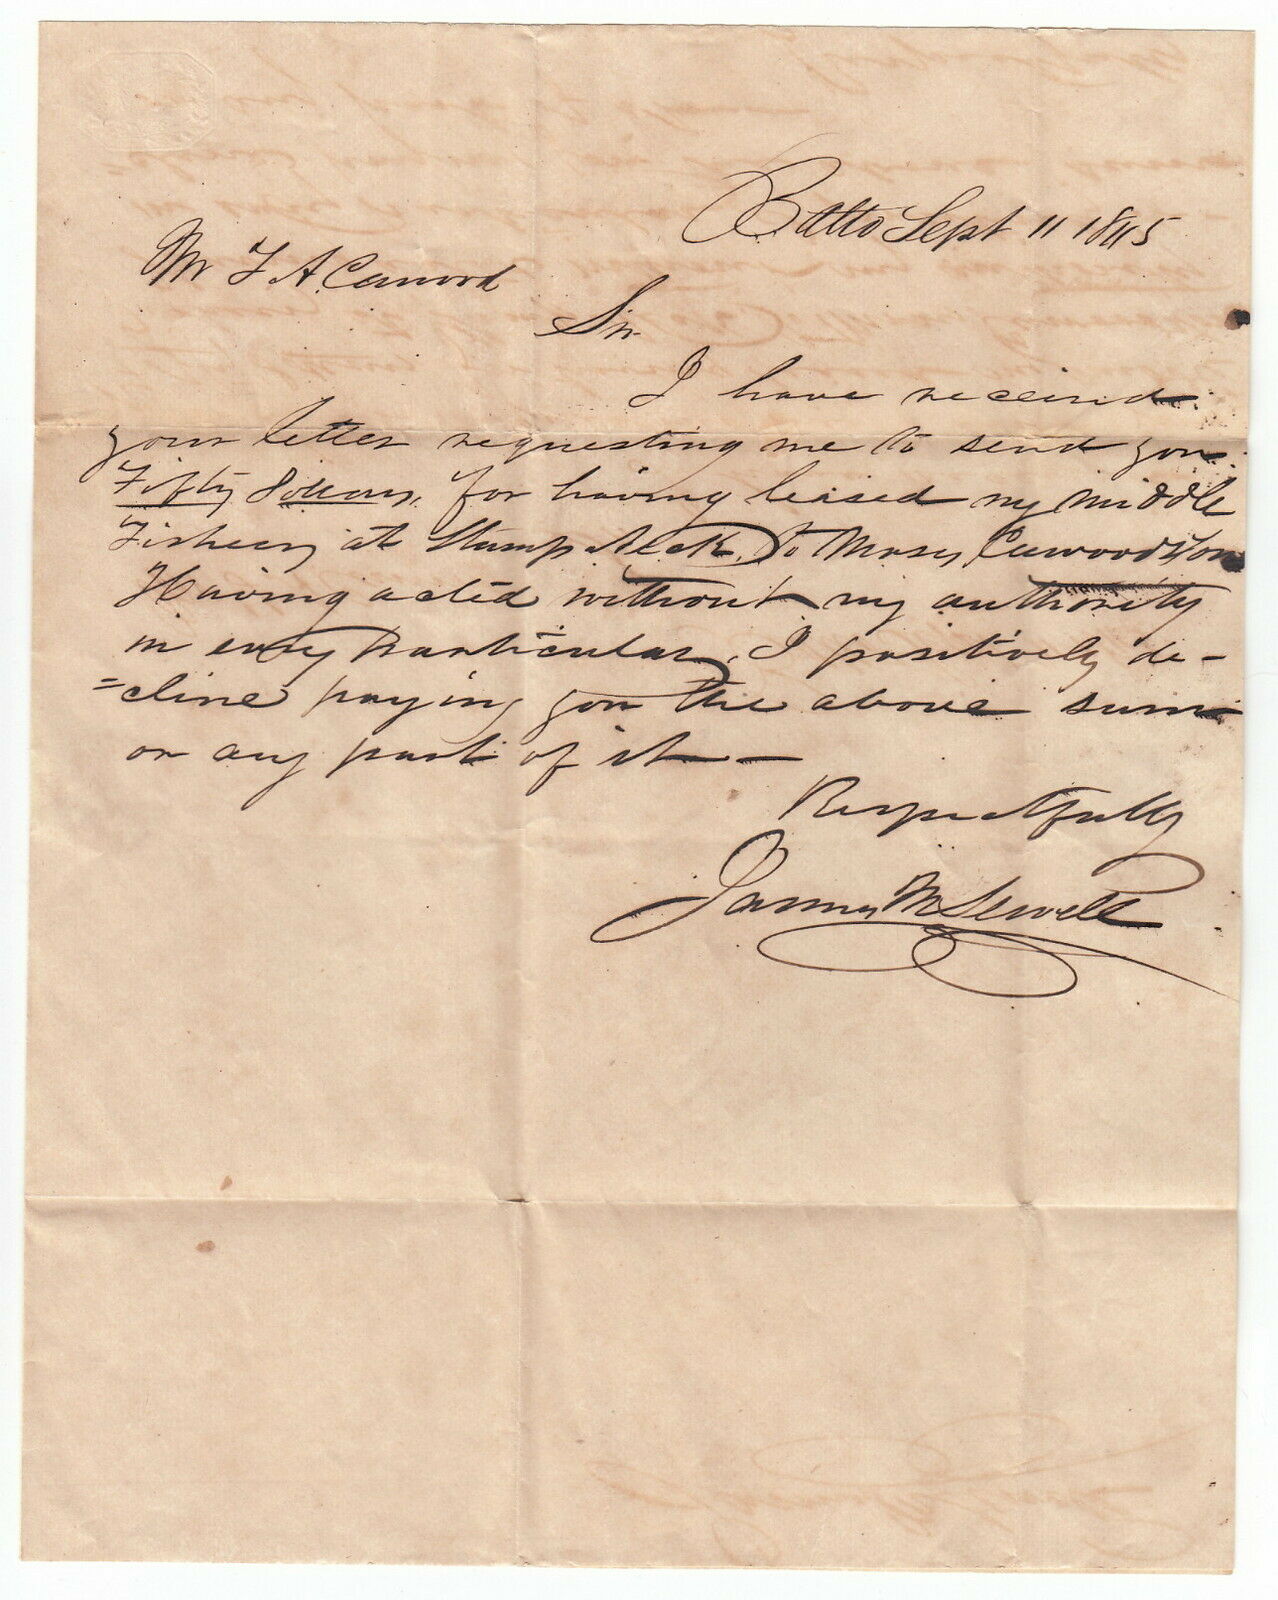 Balto Sept 11 1845
Mr F A. Cawood
Sir
I have receivd
your letter requesting me to send you
Fifty Dollars, for having leased my middle
Fishery at Stump Neck, to Moses Cawood & Son
Having acted without my authority
in every Particular, I positively de-
=cline paying you the above sum
or any part of it —
Respectfully
James M Sewell